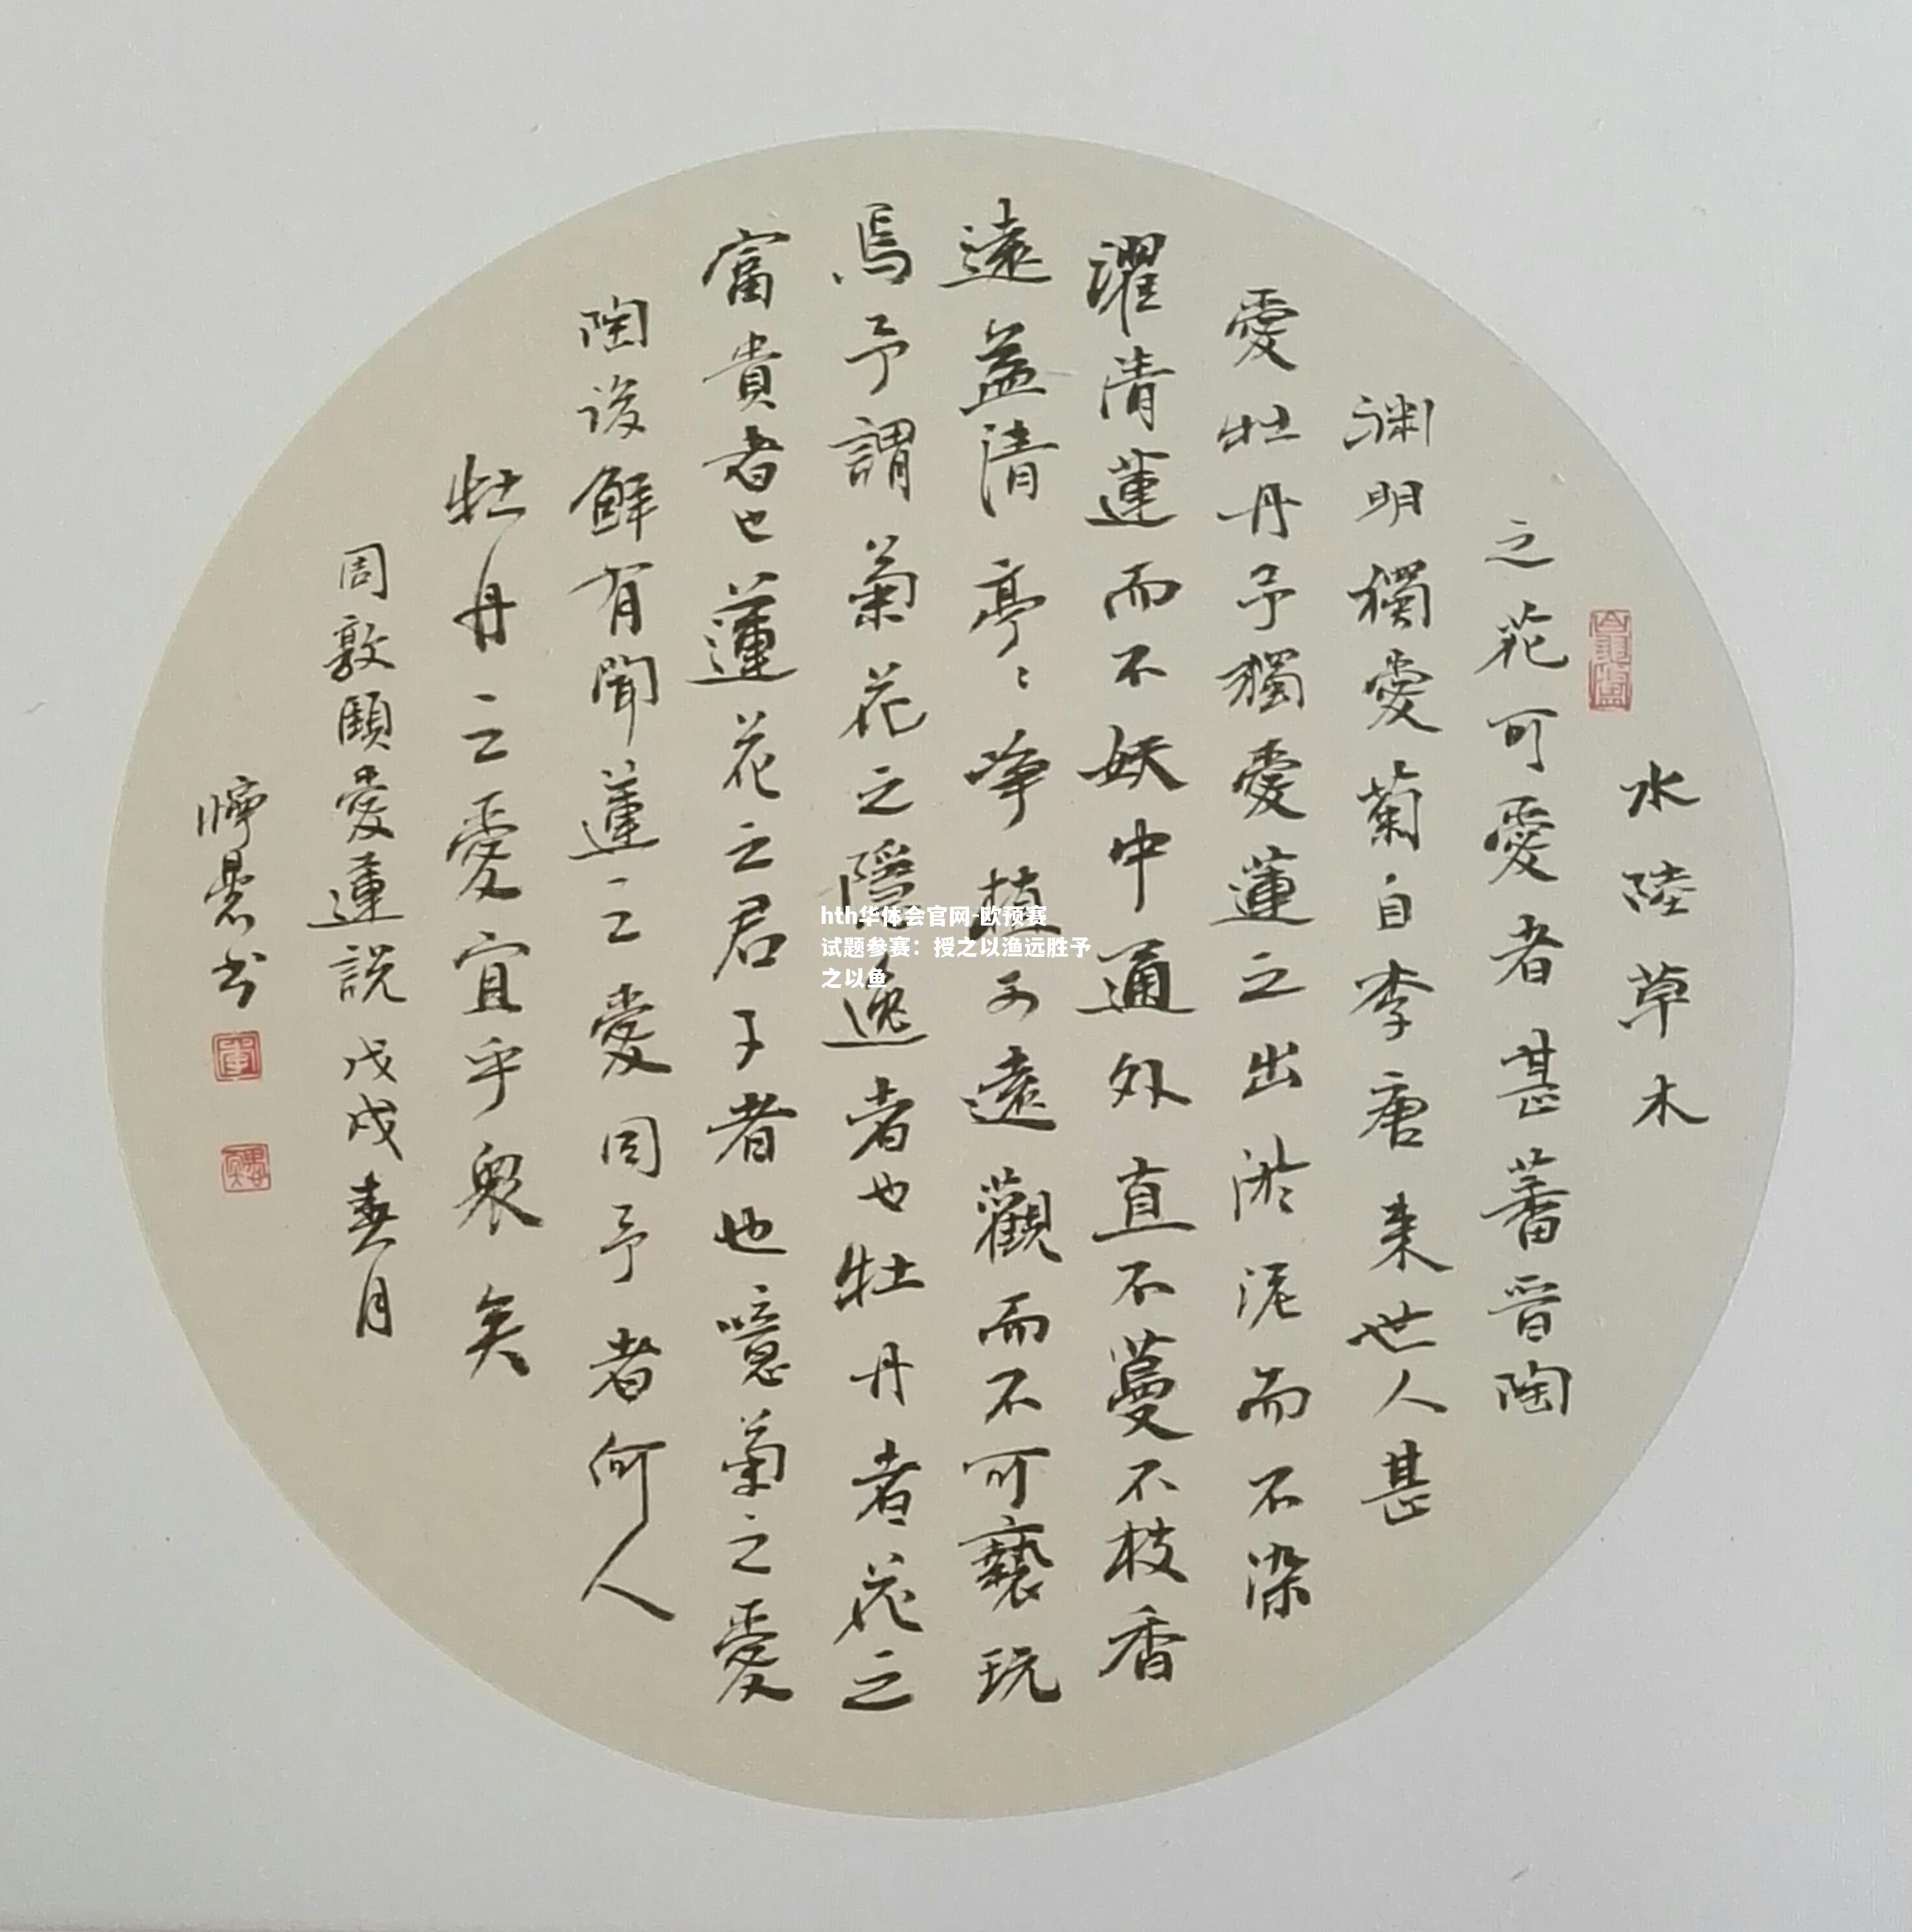 水陸草木
之花可愛者甚蕃晋陶
渊明獨愛菊自李唐来世人甚
愛牡丹予獨愛蓮之出淤泥而不染
濯清蓮而不妖中通外直不蔓不枝香
遠益清亭〻净植可遠觀而不可褻玩
焉予謂菊花之隱逸者也牡丹者花之
富貴者也蓮花之君子者也噫菊之愛
陶後鮮有聞蓮之愛同予者何人
牡丹之愛宜乎眾矣
周敦頤愛蓮説戊戌春月
书
hth华体会官网-欧预赛
试题参赛：授之以渔远胜予
之以鱼